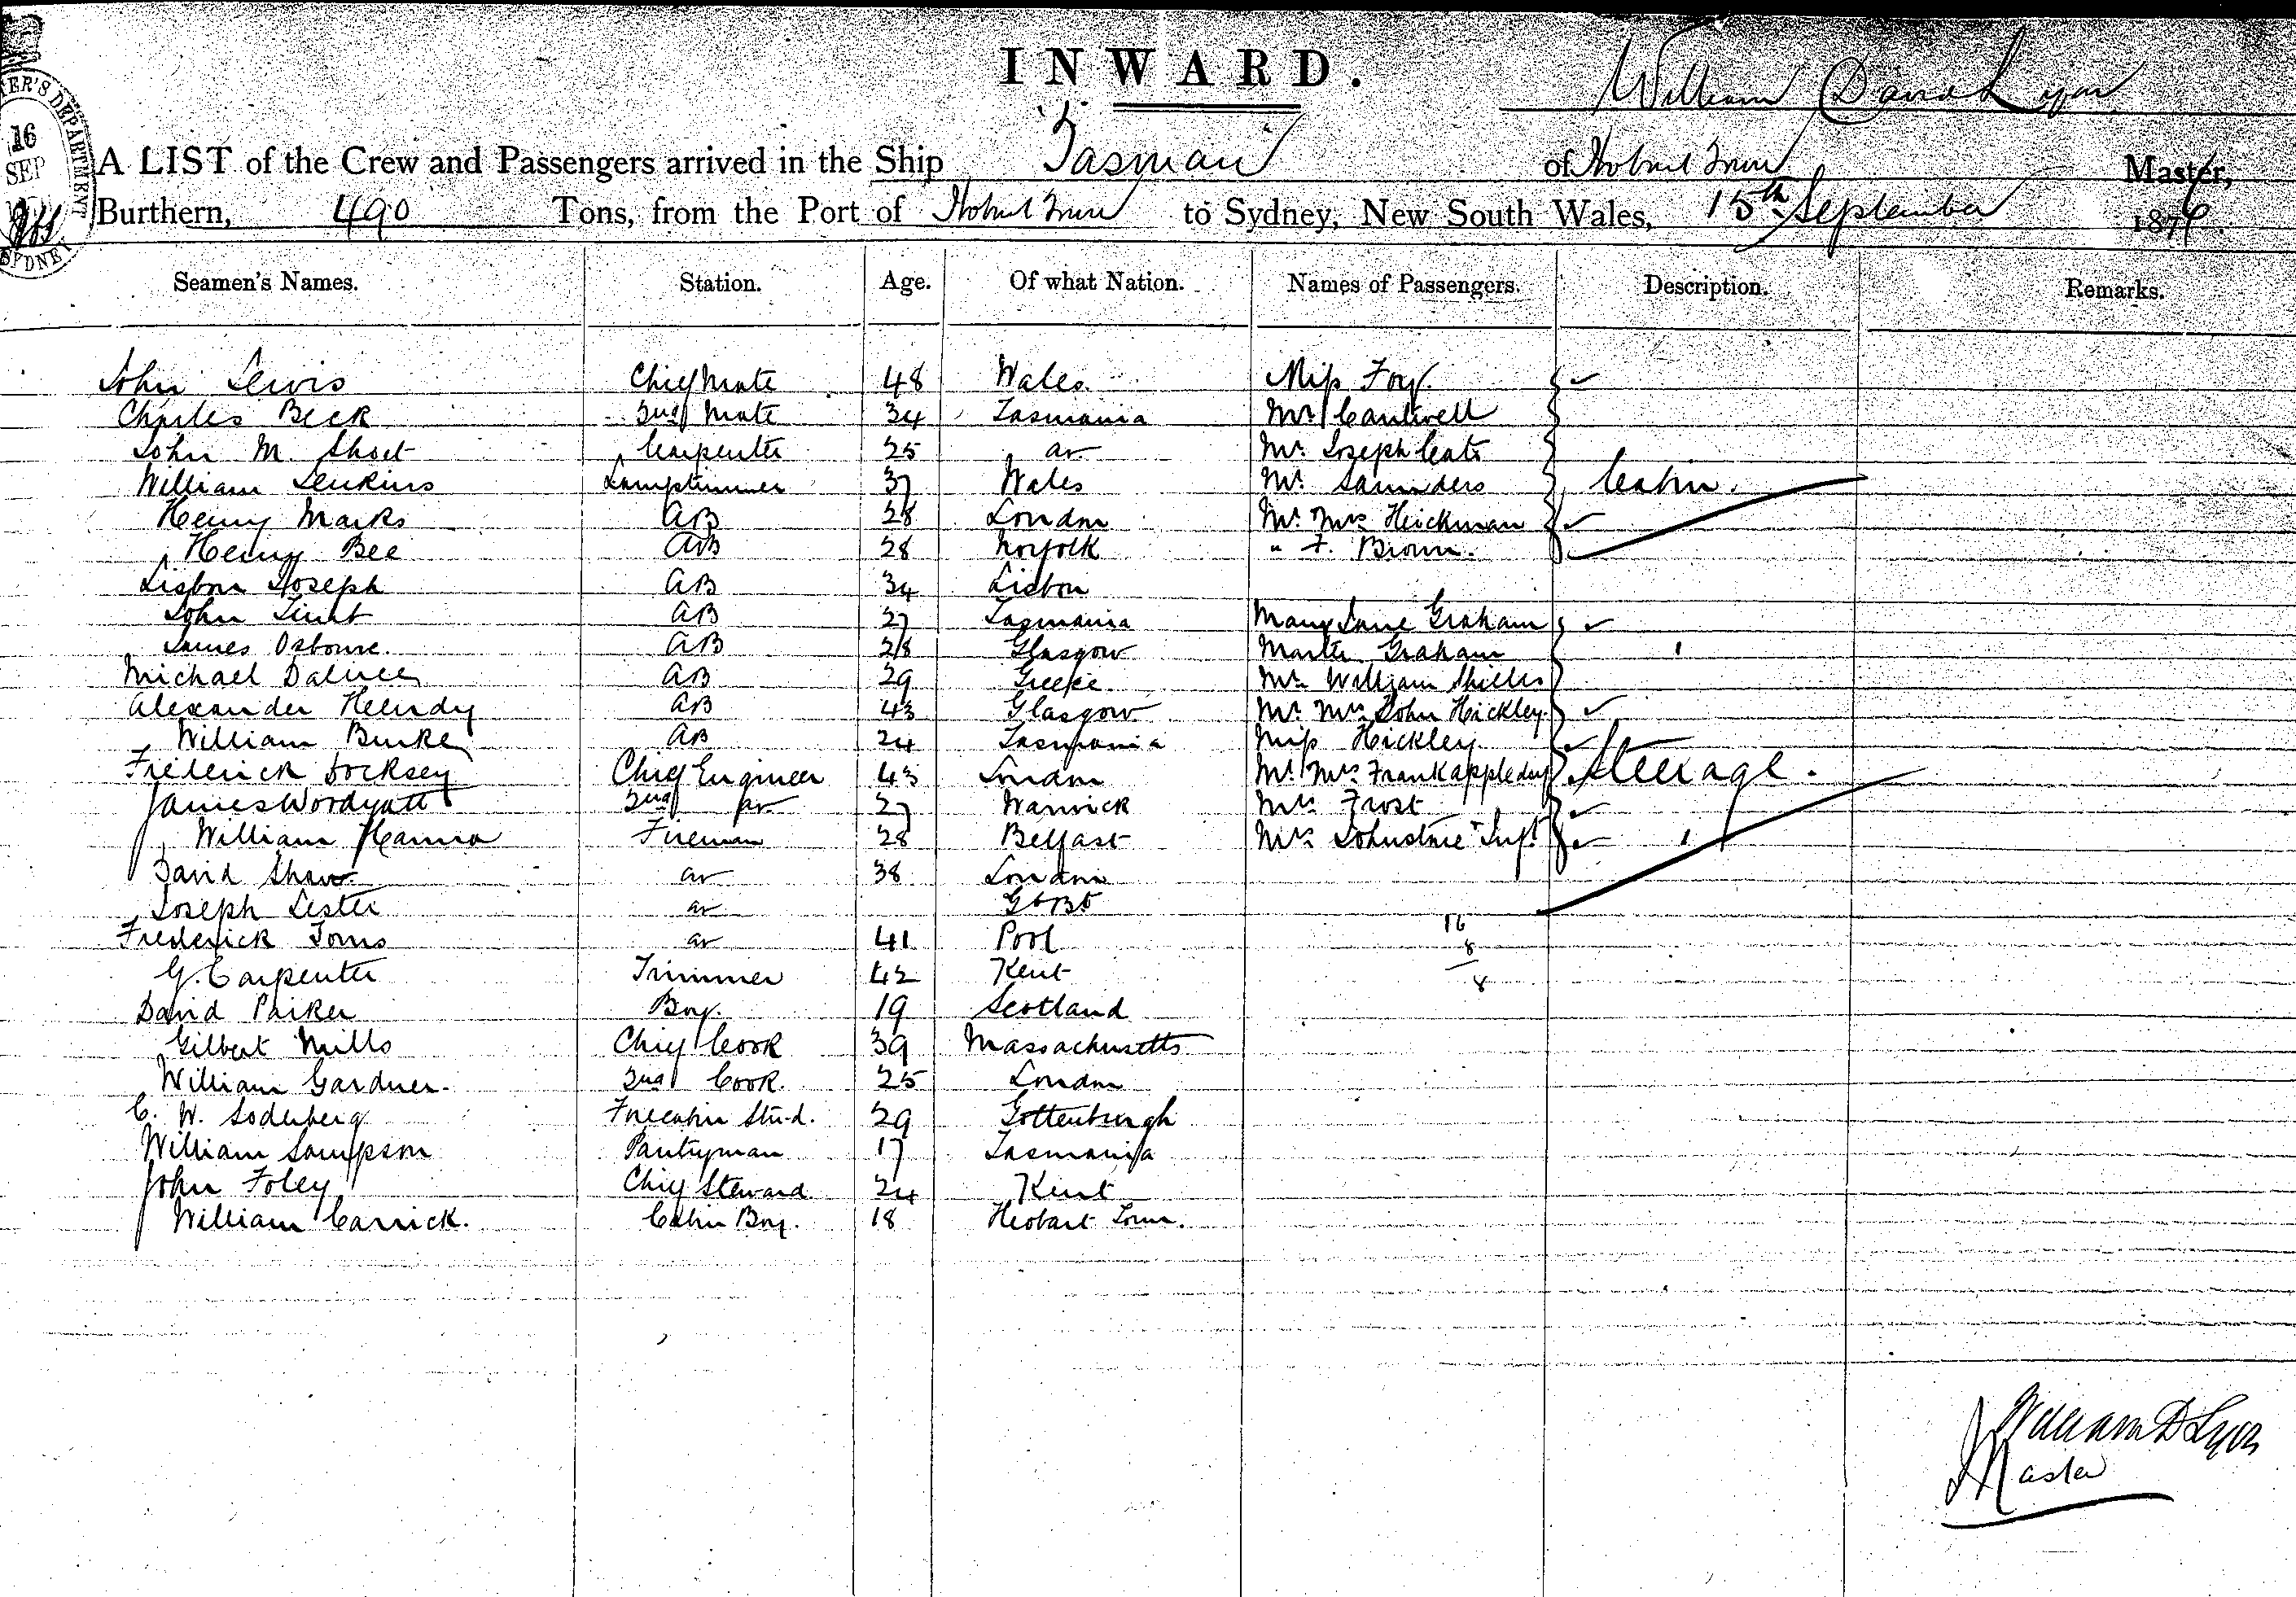 INWARD.
William David Lyon
A LIST of the Crew and Passengers arrived in the Ship Tasman of Hobart Town Master,
Burthern, 490 Tons, from the Port of Hobart Town to Sydney, New South Wales, 15th September 1876
16
SEP
SYDNEY
Seamen's Names. Station. Age. Of what Nation. Names of Passengers. Description. Remarks.
John Lewis Chief Mate 48 Wales Miss Foy
Charles Beck 2nd Mate 34 Tasmania Mr Cantwell
John M. Short Carpenter 25 do Mr Joseph Cato
William Jenkins Lamptrimmer 37 Wales Mr Saunders Cabin.
Henry Marks AB 28 London Mr Mrs Hickman
Henry Bee AB 28 Norfolk " F. Brown.
Lisbon Joseph AB 34 Lisbon
John AB 27 Tasmania Mary Jane Graham
James Osborne. AB 28 Glasgow Master Graham
Michael AB 29 Greece Mr William
Alexander AB 43 Glasgow Mr Mrs John Hickley
William Burke AB 24 Tasmania Miss Hickley
Frederick Docksey Chief Engineer 43 London Mr Mrs Frank Steerage.
James Woodyatt 2nd do 27 Warwick Mrs Frost
William Hanna Fireman 28 Belfast Mrs Johnstone + Inft
David Shaw do 38 London
Joseph Lester do Gt Bt
Frederick Toms do 41 Pool 16
8
G. Carpenter Trimmer 42 Kent 8
David Parker Boy. 19 Scotland
Gilbert Mills Chief Cook 39 Massachusetts
William Gardner. 2nd Cook. 25 London
C. W. Soderberg Forecabin Stwd. 29 Gottenburgh
William Sampson Pantryman 17 Tasmania
John Foley Chief Steward 24 Kent
William Carrick. Cabin Boy. 18 Hobart Town.
William D Lyon
Master